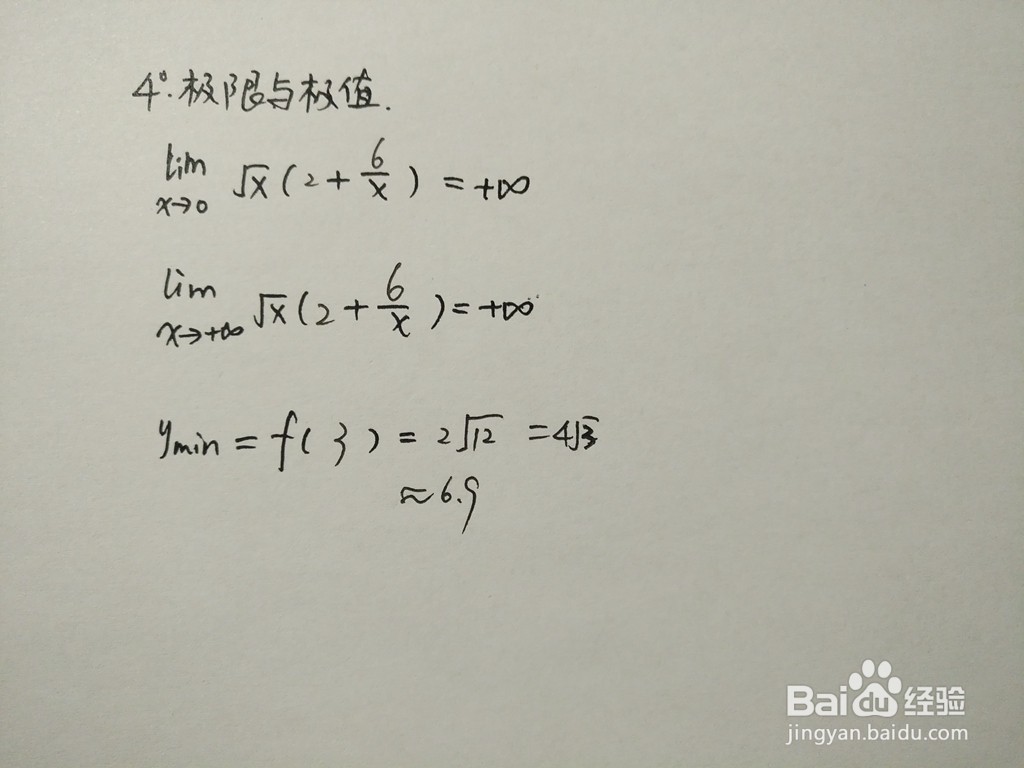 4°. 极限与极值.
lim x→0 √x ( 2 + 6/x ) = +∞
lim x→+∞ √x ( 2 + 6/x ) = +∞
ymin = f( 3 ) = 2√12 = 4√3
≈ 6.9
Bai du 经验
jingyan.baidu.com